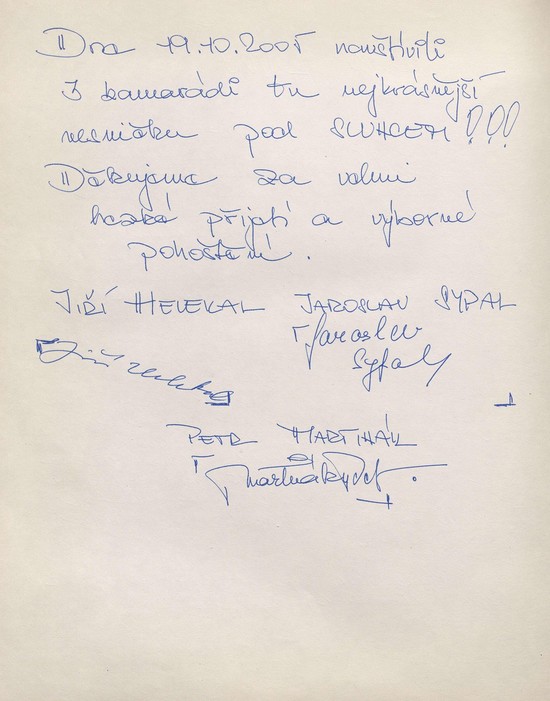 Dne 19.10.2005 navštívili
3 kamarádi tu nejkrásnější
vesničku pod SLUNCEM!!!
Děkujeme za velmi
hezké přijetí a výborné
pohoštění.
JIŘÍ HELEKAL JAROSLAV SYPAL
Jaroslav
Sypal
PETR MARTINÁK
Martinák Petr